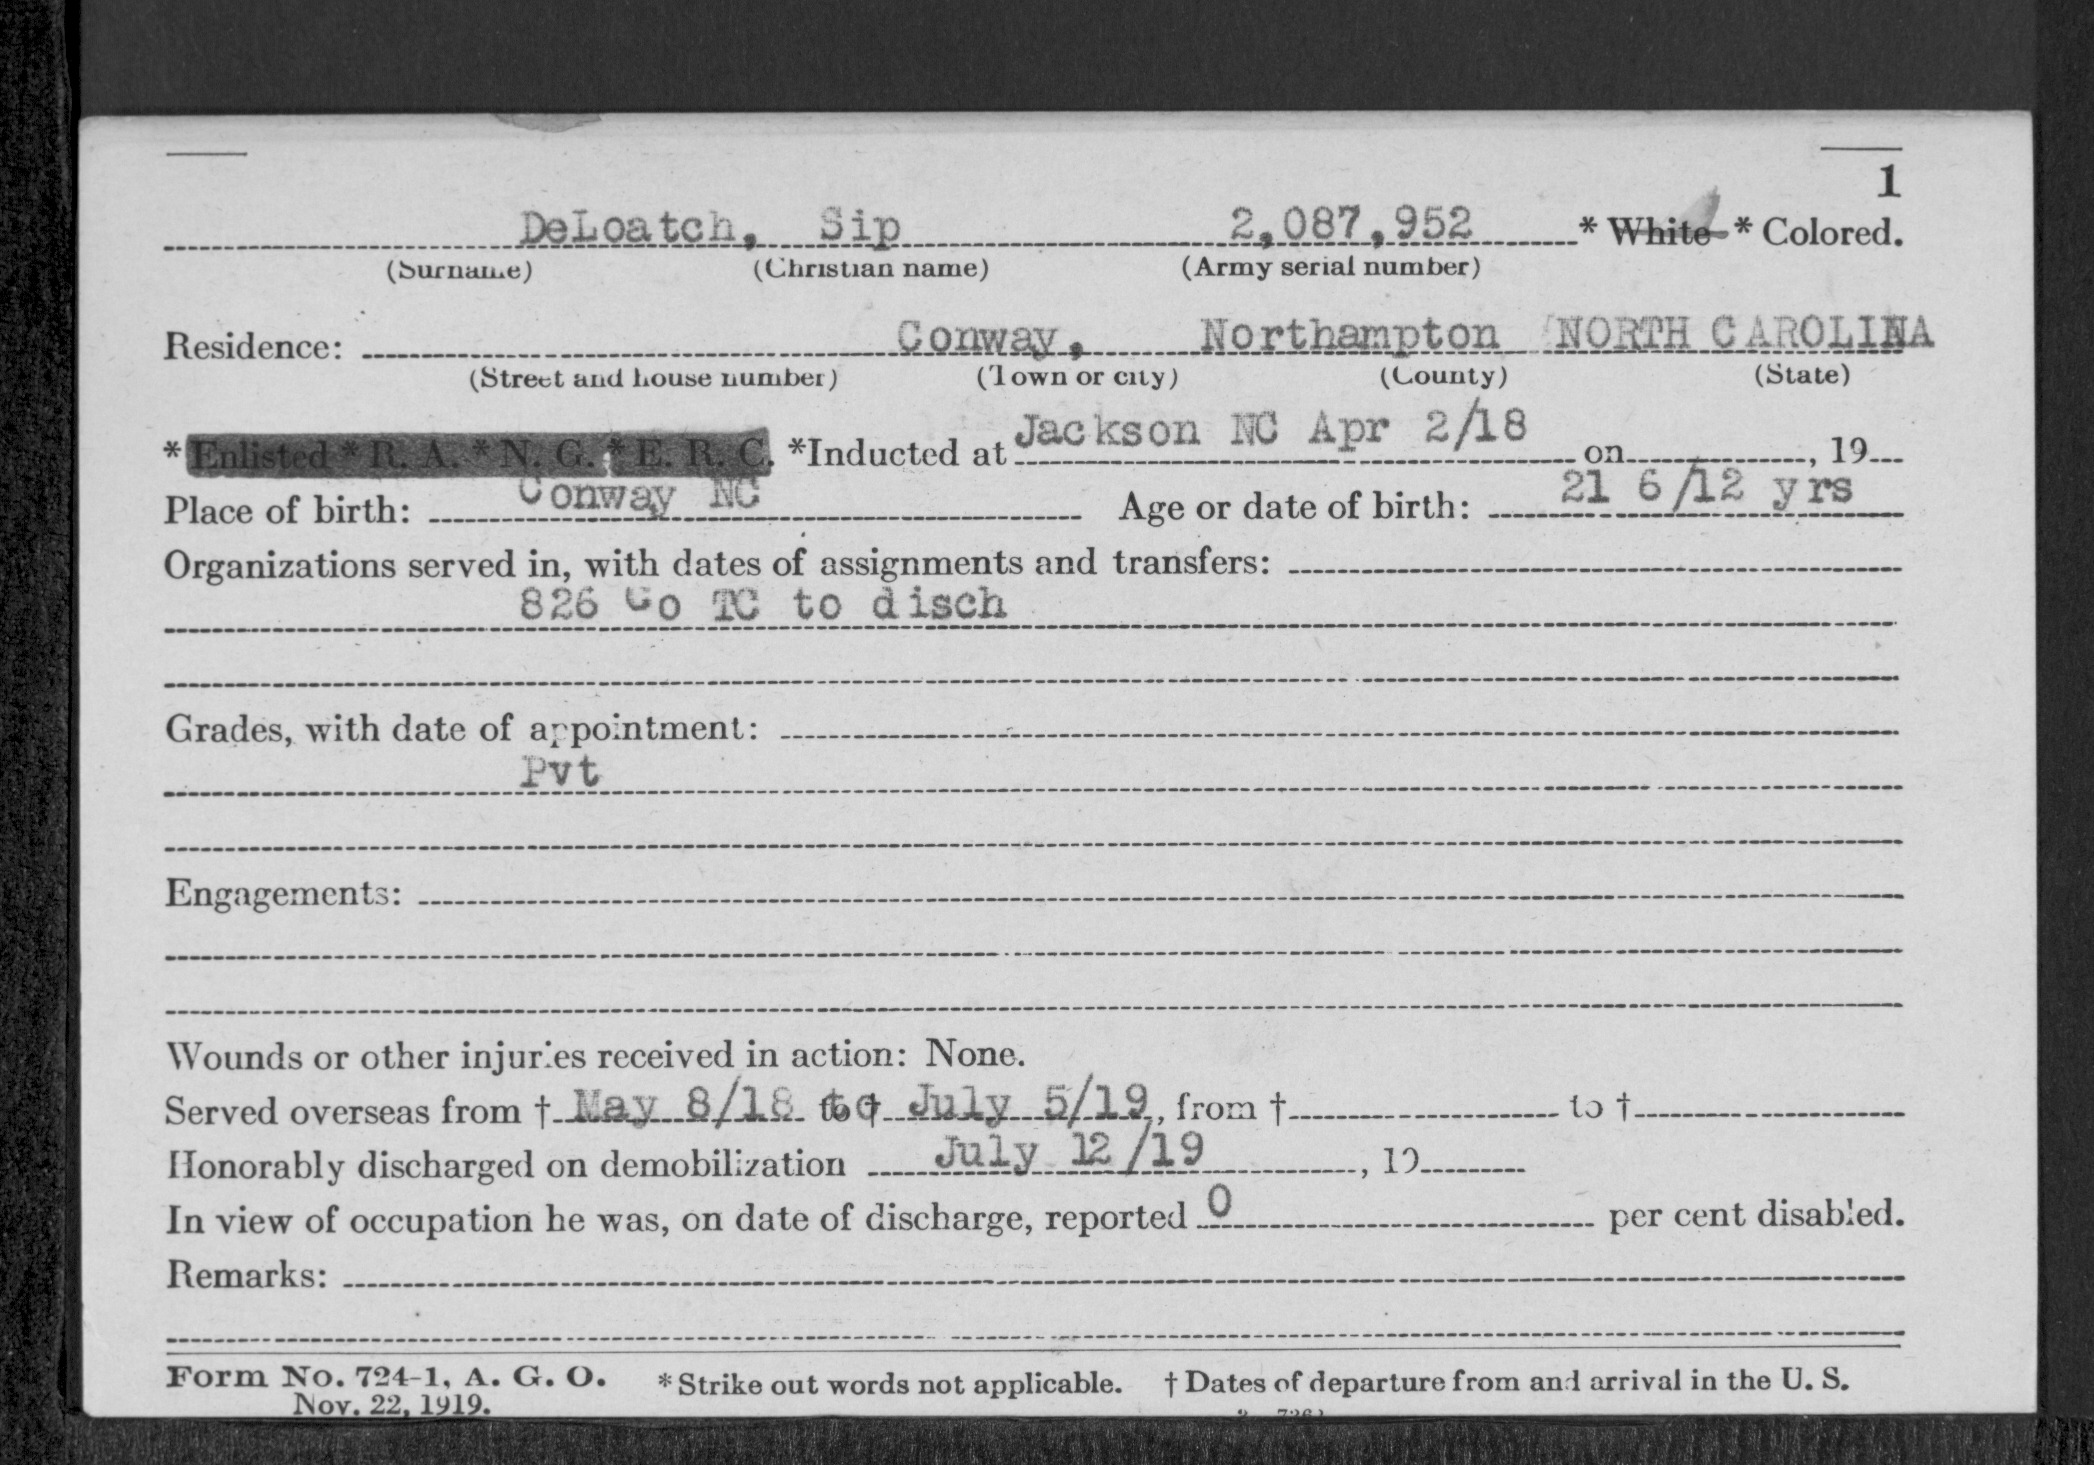 1
DeLoatch, Sip 2,087,952 * White * Colored.
(Surname) (Christian name) (Army serial number)
Residence: Conway, Northampton NORTH CAROLINA
(Street and house number) (Town or city) (County) (State)
* Enlisted * R. A. * N. G. * E. R. C. *Inducted at Jackson NC Apr 2/18 on , 19
Place of birth: Conway NC Age or date of birth: 21 6/12 yrs
Organizations served in, with dates of assignments and transfers:
826 Co TC to disch
Grades, with date of appointment:
Pvt
Engagements:
Wounds or other injuries received in action: None.
Served overseas from † May 8/18 to † July 5/19, from † to †
Honorably discharged on demobilization July 12/19 , 19
In view of occupation he was, on date of discharge, reported 0 per cent disabled.
Remarks:
Form No. 724-1, A. G. O. * Strike out words not applicable. † Dates of departure from and arrival in the U. S.
Nov. 22, 1919.